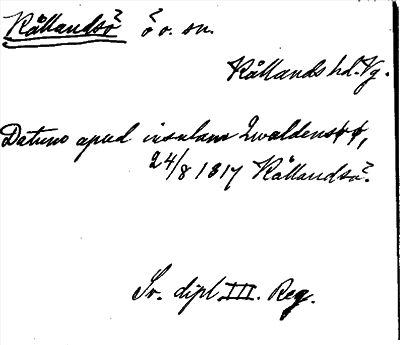 Kållandsö ö o. sn.
Kållands hd. Vg.
Datum apud insulam Qwaldensöö,
24/8 1317 Kållandsö.
Sv. dipl III. Reg.